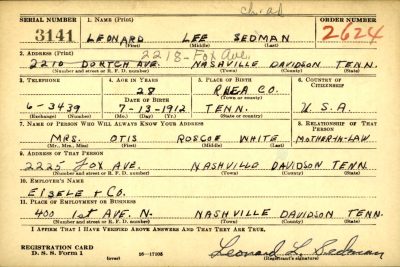 SERIAL NUMBER 1. NAME (Print) ORDER NUMBER
3141 LEONARD LEE SEDMAN 2624
(First) (Middle) (Last)
2. ADDRESS (Print) 2218-Fox Ave
2210 DORTCH AVE. NASHVILLE DAVIDSON TENN.
(Number and street or R. F. D. number) (Town) (County) (State)
3. TELEPHONE 4. AGE IN YEARS 5. PLACE OF BIRTH 6. COUNTRY OF CITIZENSHIP
28 RHEA CO.
DATE OF BIRTH (Town or county)
6-3439 7-13-1912 TENN. U.S.A.
(Exchange) (Number) (Mo.) (Day) (Yr.) (State or country)
7. NAME OF PERSON WHO WILL ALWAYS KNOW YOUR ADDRESS 8. RELATIONSHIP OF THAT PERSON
MRS. OTIS ROSCOE WHITE MOTHER-IN-LAW
(Mr., Mrs., Miss) (First) (Middle) (Last)
9. ADDRESS OF THAT PERSON
2225 FOX AVE. NASHVILLE DAVIDSON TENN.
(Number and street or R. F. D. number) (Town) (County) (State)
10. EMPLOYER'S NAME
EISELE & CO.
11. PLACE OF EMPLOYMENT OR BUSINESS
400 1st AVE. N. NASHVILLE DAVIDSON TENN.
(Number and street or R. F. D. number) (Town) (County) (State)
I AFFIRM THAT I HAVE VERIFIED ABOVE ANSWERS AND THAT THEY ARE TRUE.
REGISTRATION CARD
D. S. S. Form 1 (over) 16-17105 Leonard L. Sedman
(Registrant's signature)